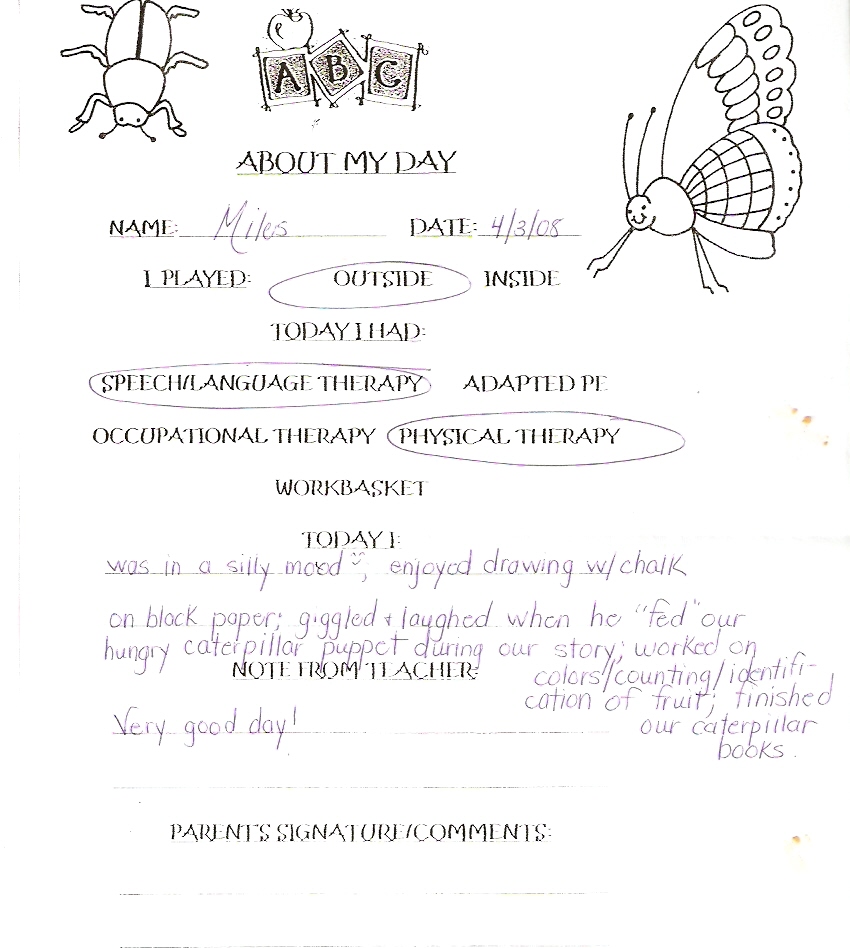 A B C
ABOUT MY DAY
NAME: Miles DATE: 4/3/08
I PLAYED: OUTSIDE INSIDE
TODAY I HAD:
SPEECH/LANGUAGE THERAPY ADAPTED PE
OCCUPATIONAL THERAPY PHYSICAL THERAPY
WORKBASKET
TODAY I:
was in a silly mood; enjoyed drawing w/chalk
on black paper; giggled + laughed when he "fed" our
hungry caterpillar puppet during our story; worked on
colors/counting/identifi-
cation of fruit; finished
our caterpillar
books.
NOTE FROM TEACHER:
Very good day!
PARENT'S SIGNATURE/COMMENTS: